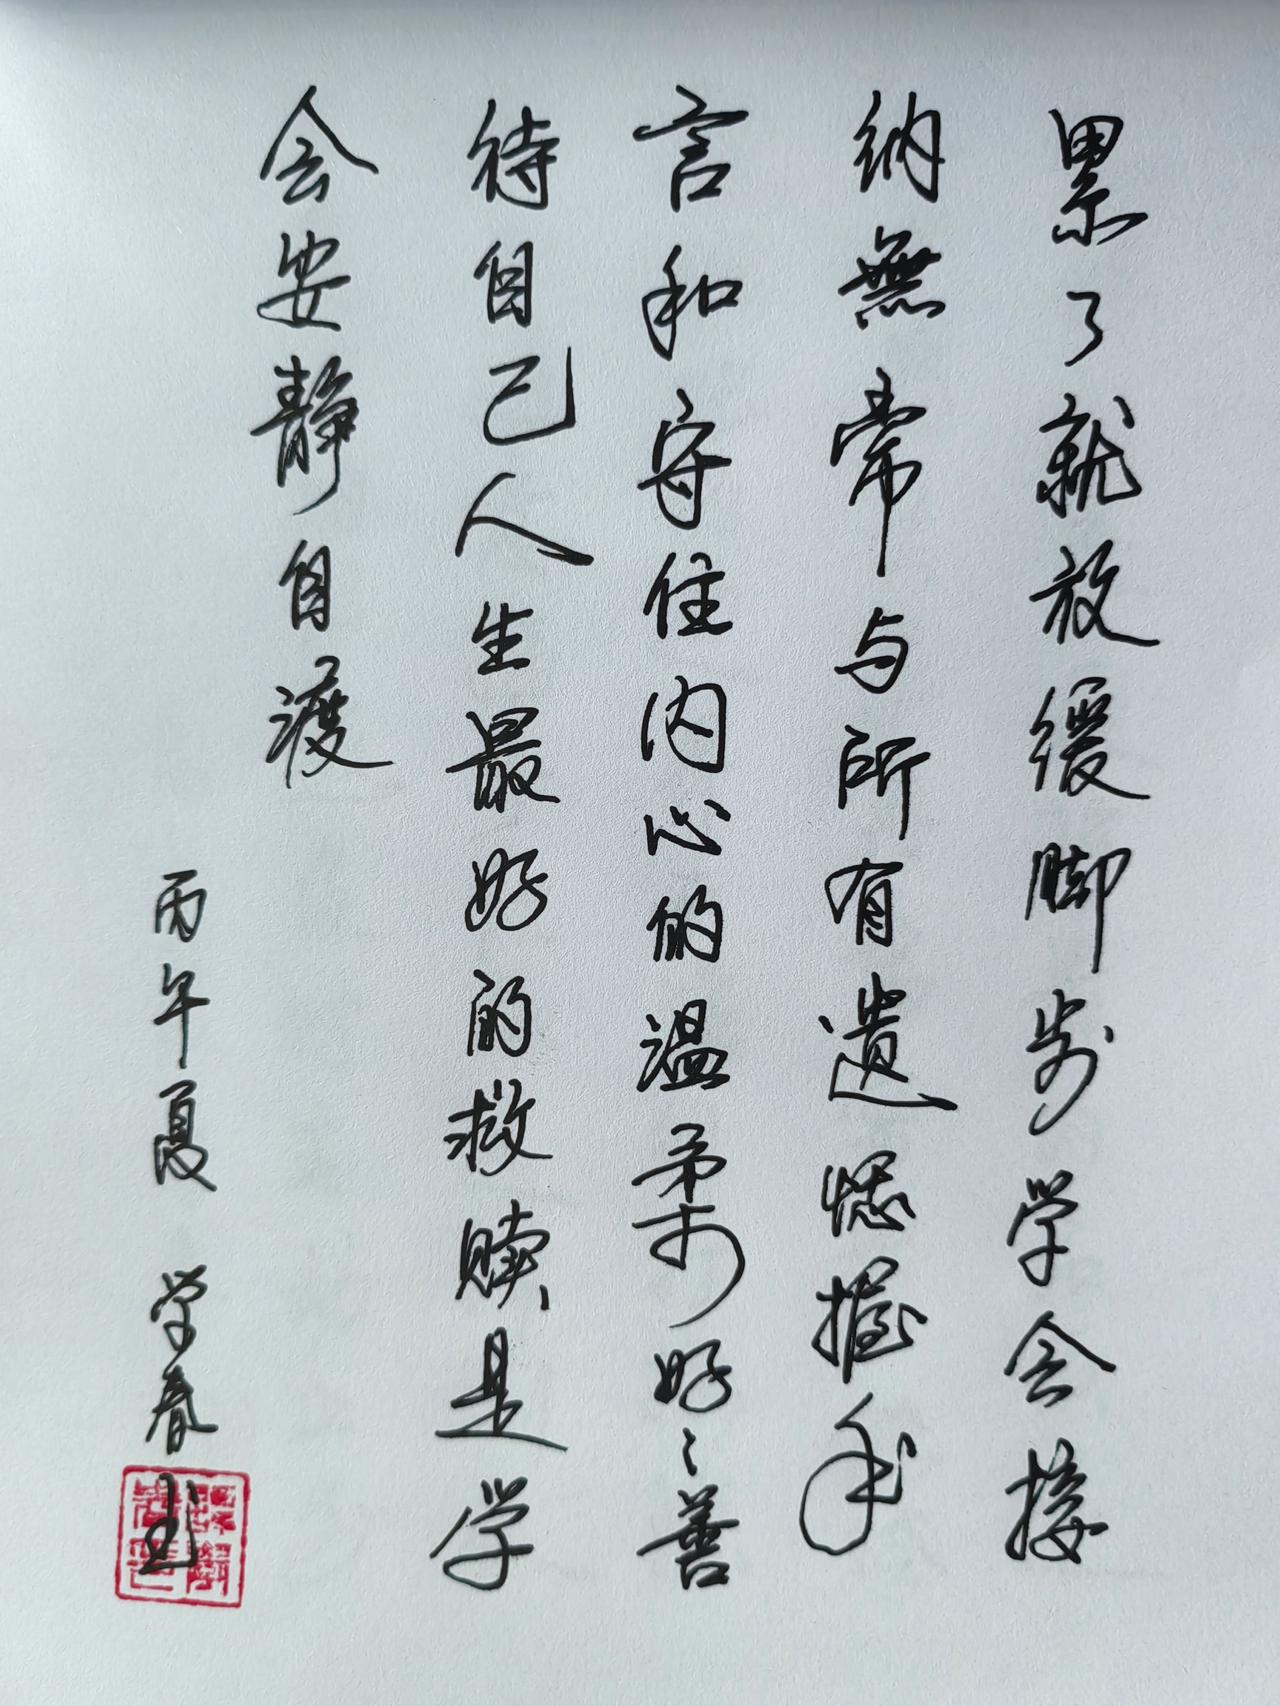 累了就放缓脚步学会接
纳無常与所有遗憾握手
言和守住内心的温柔好〻善
待自己人生最好的救赎是学
会安静自渡
丙午夏 学春书